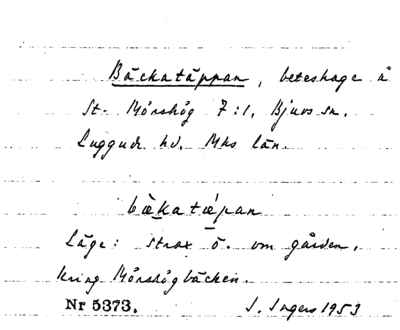 Bäckatäppan, beteshage å
St. Mörshög 7:1, Bjuvs sn.
Luggude hd. Mhs län.
bæ̀katæ̀pan
Läge: strax ö. om gården,
kring Mörshögbäcken.
Nr 5373. J. Ingers 1953